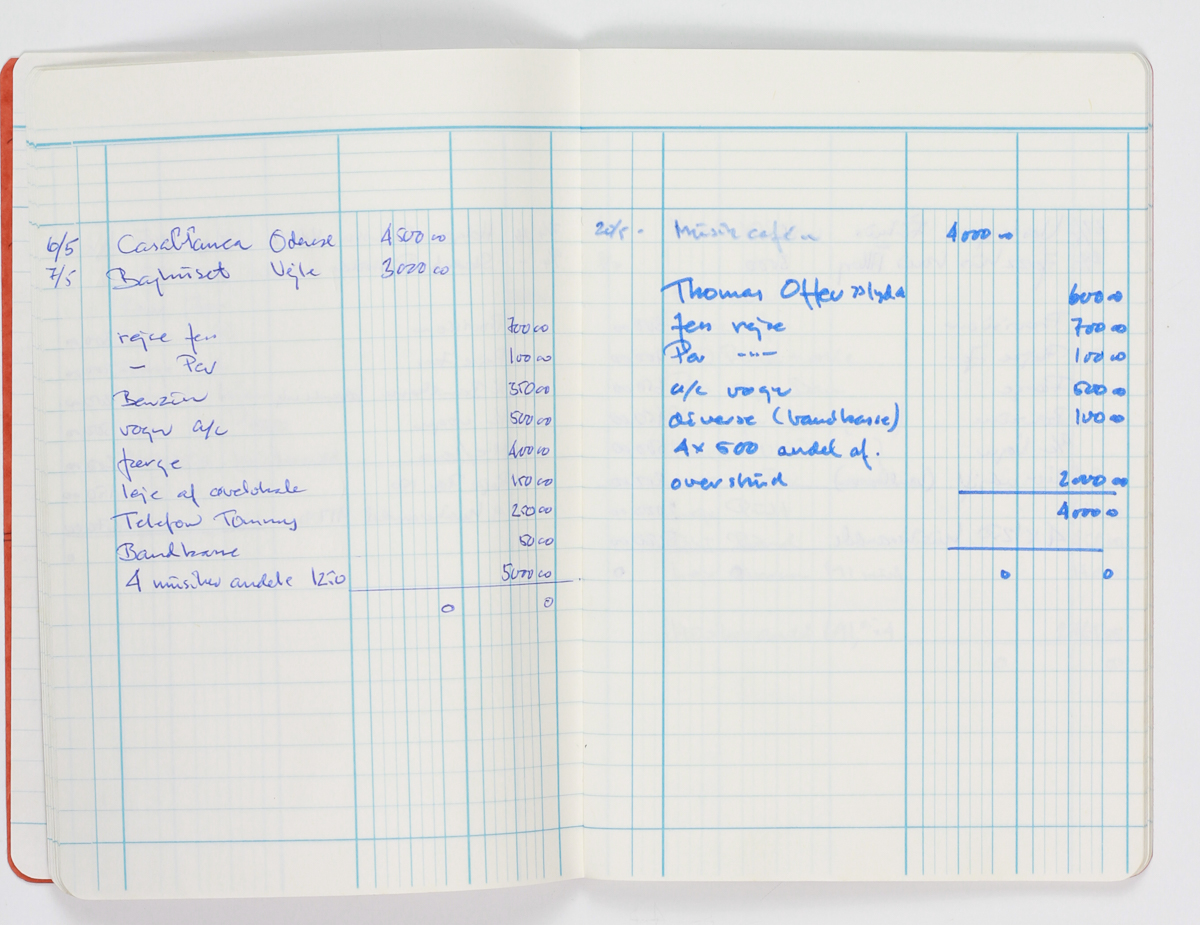 6/5 Casablanca Odense 4500 00
7/5 Bajhuset Vejle 3000 00
rejse Jens 700 00
— Per 100 00
Benzin 350 00
vogn a/c 500 00
færge 400 00
leje af øvelokale 150 00
Telefon Tommy 250 00
Bandkasse 50 00
4 musiker andele 1250 5000 00
0 0
20/5 - Musikcaféen 4000 00
Thomas Offer 600 00
Jens rejse 700 00
Per -"- 100 00
a/c vogn 500 00
diverse (bandkasse) 100 00
4 x 500 andel af.
overskud 2000 00
4000 00
0 0